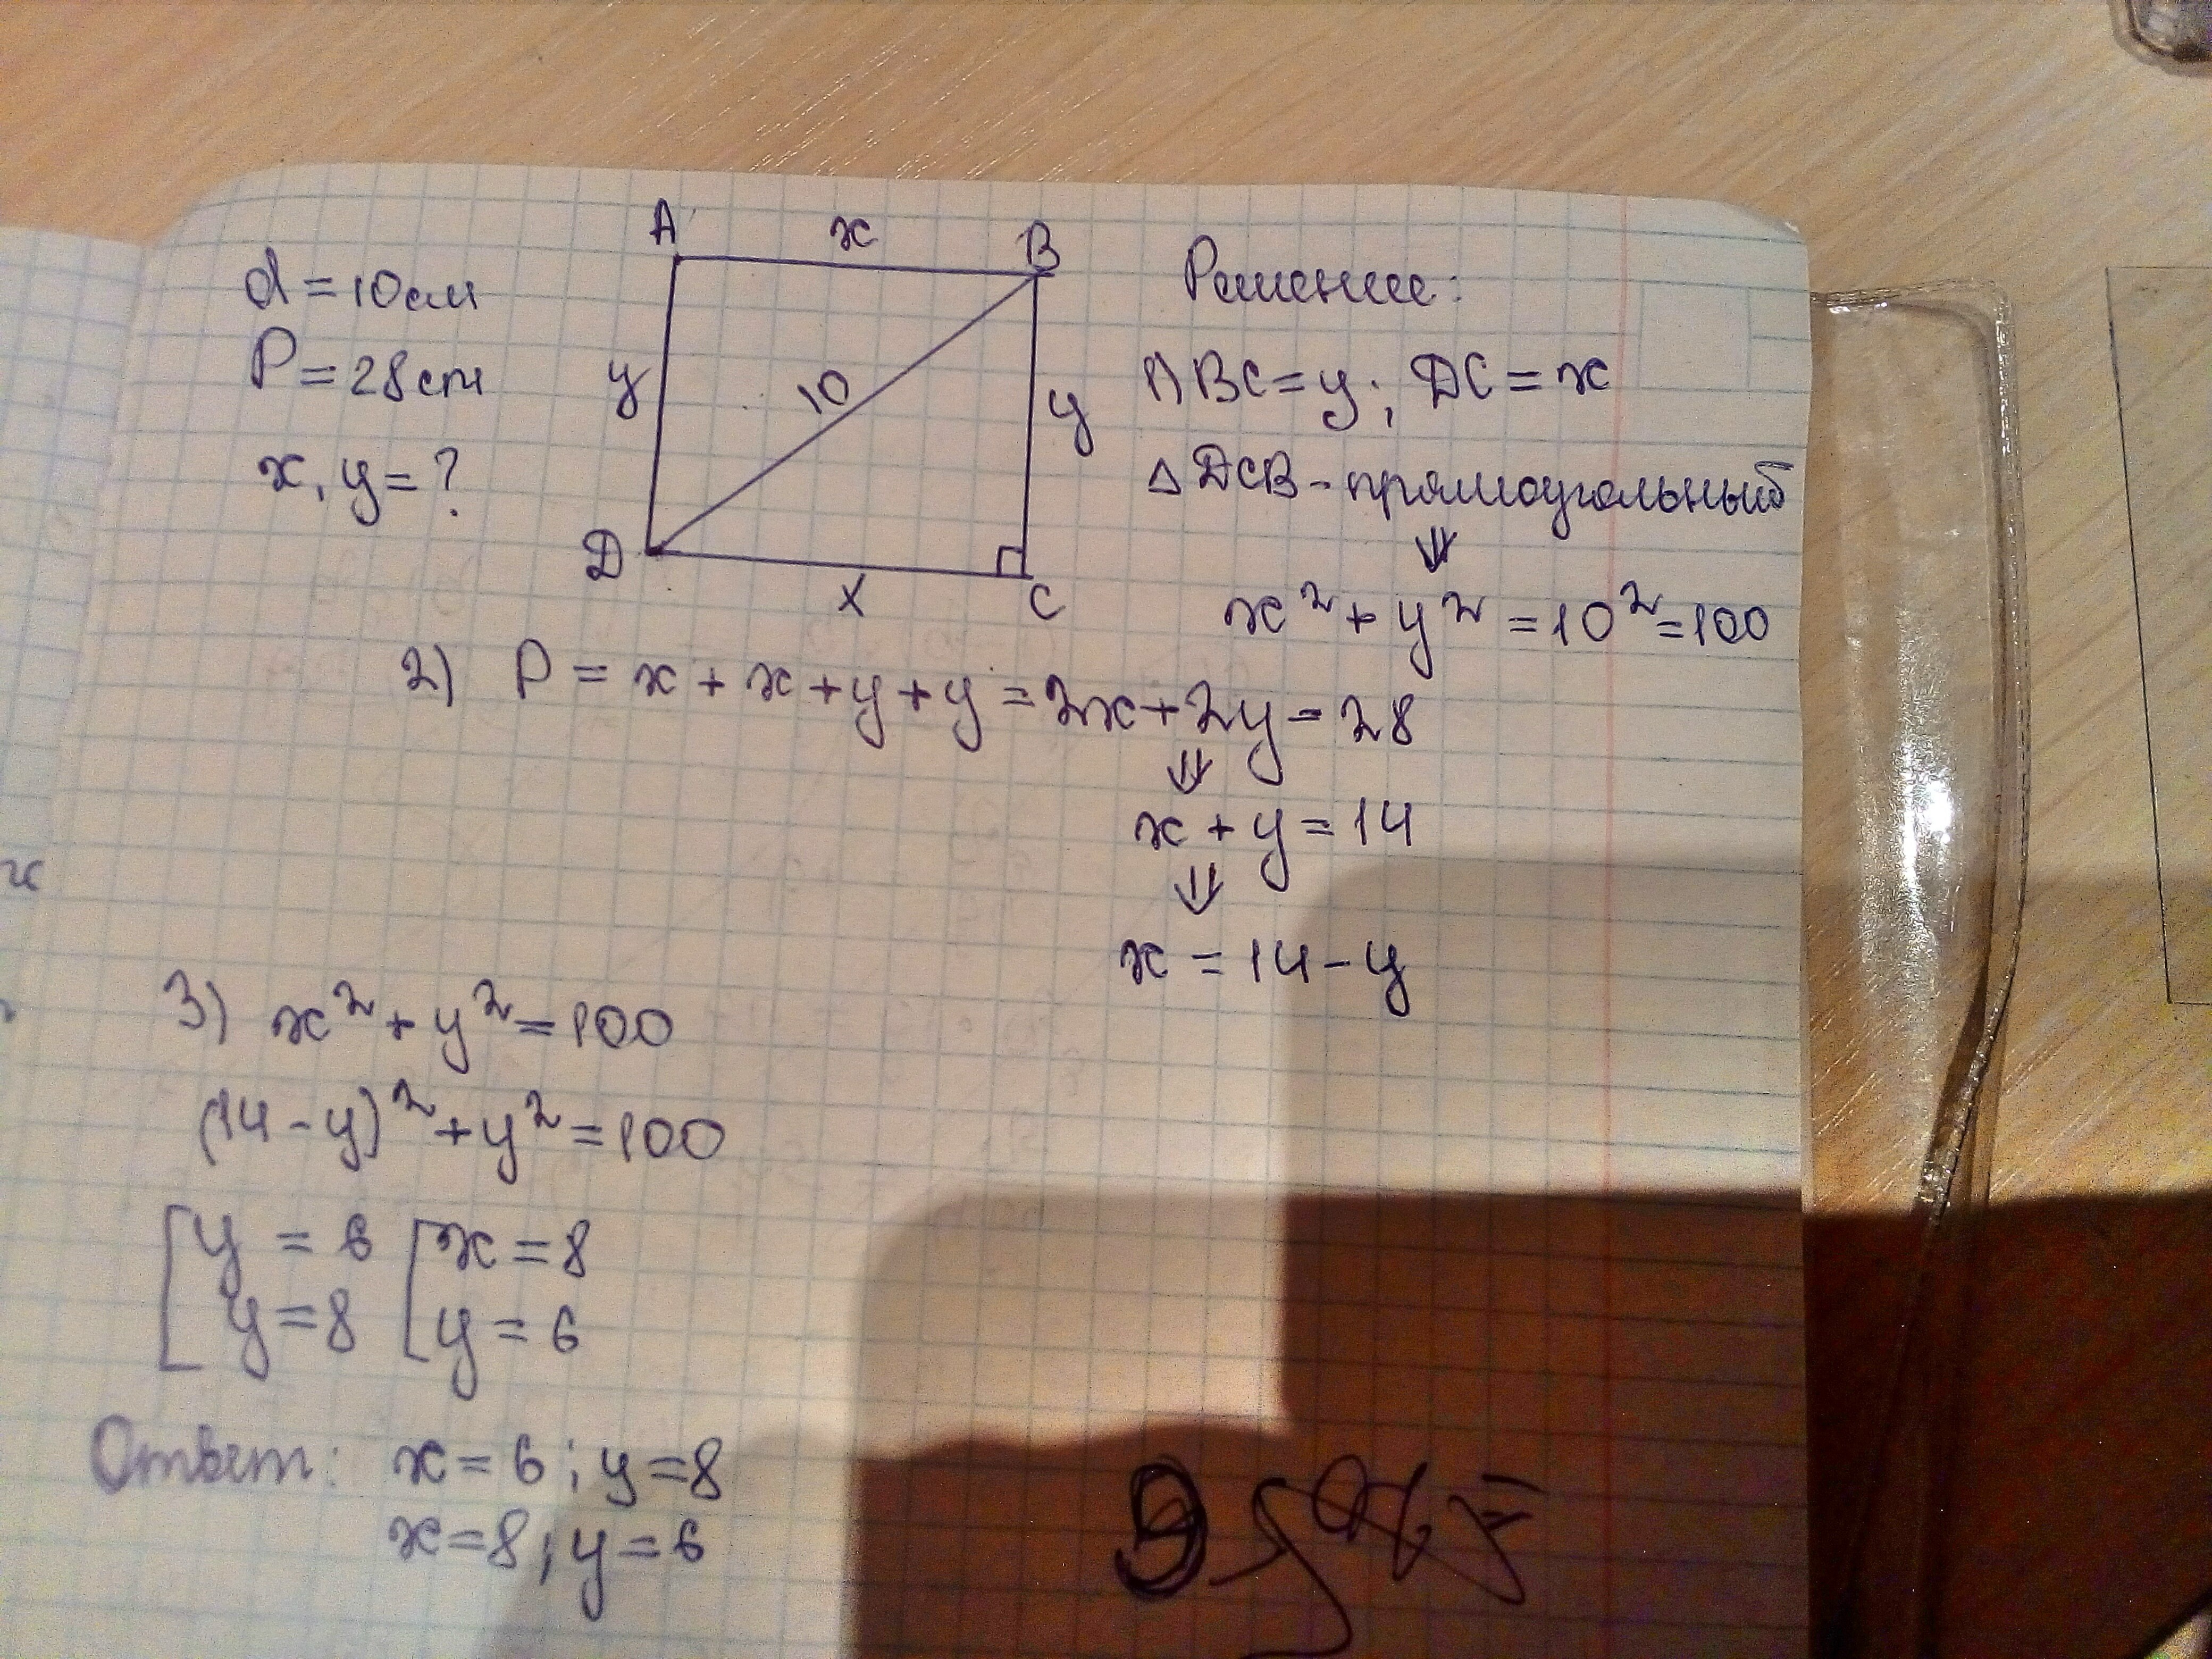 d = 10 см
P = 28 см
x, y = ?
A
x
B
y
10
y
D
x
C
Решение:
1) BC = y; DC = x
Δ DCB - прямоугольный
⇓
x² + y² = 10² = 100
2) P = x + x + y + y = 2x + 2y = 28
⇓
x + y = 14
⇓
x = 14 - y
3) x² + y² = 100
(14 - y)² + y² = 100
[y = 6 [x = 8
y = 8 y = 6
Ответ: x = 6; y = 8
x = 8; y = 6